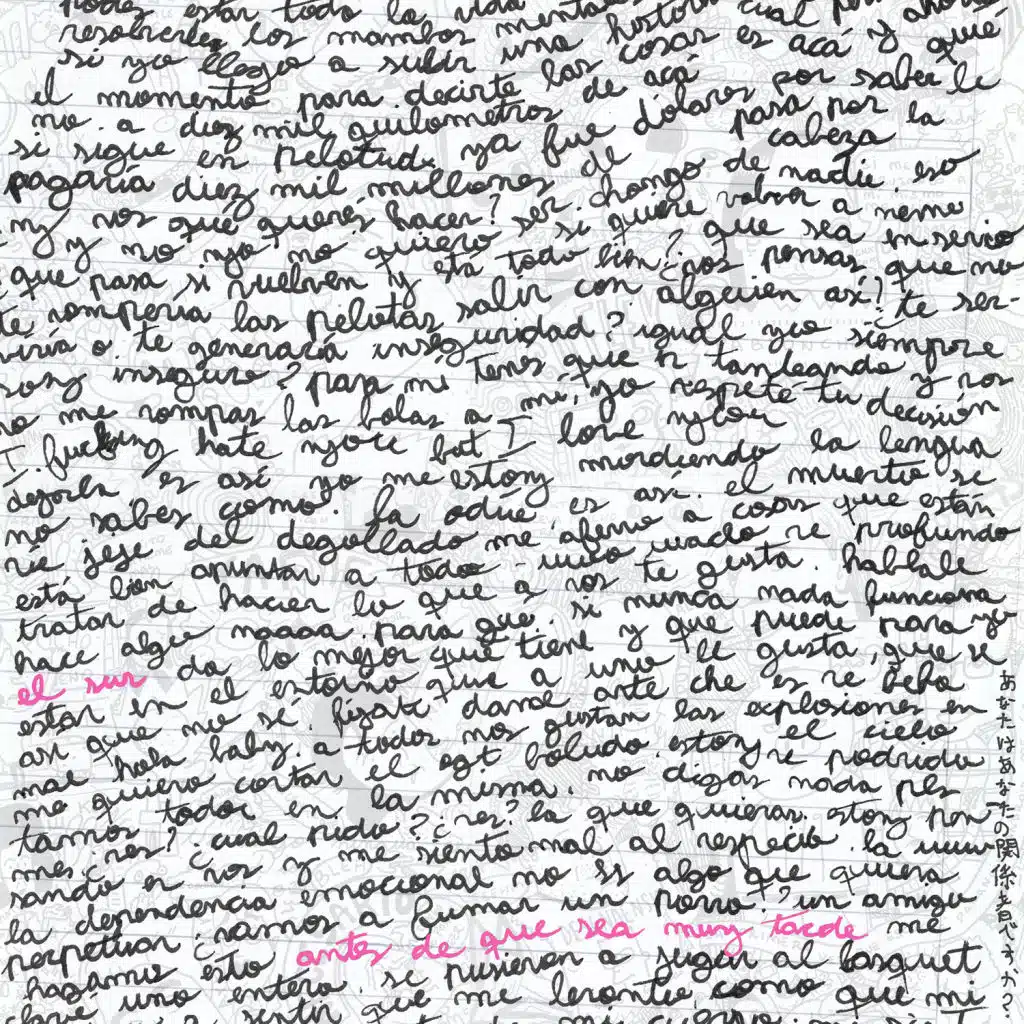 podés estar toda la vida
resolverles los mambos mentales una historia cual
si yo llego a subir las cosas es acá y qué
el momento para decirte de acá por saber le
no. a diez mil quilometros dólares pasa por la
si sigue en pelotude ya fue de cabeza
pagaría diez mil millones chongo de nadie. eso
y vos qué querés hacer? ser si quiere volver a meme
y y no yo no quiero bien? que sea en serio
que pasa si vuelven y está todo ¿vos pensas que no
te romperia las pelotas salir con alguien así? te ser-
viría o te generaría inseguridad? igual yo siempre
soy insegure? para mi tenes que ir tanteando y vos
no me rompas las bolas a mi, yo respeté tu decisión
I fucking hate you but I love you
dejarla es así yo me estoy mordiendo la lengua
no sabes como. la odié. es así. el muerto se
ríe jeje del degollado me aferro a cosas que están
está bien apuntar a todo re profundo
tratar de hacer lo que a vos te gusta. hablale
hace algo naaaa. para qué. si nunca nada funciona
el sur da lo mejor que tiene y que puede para yo
estar en el entorno que a uno le gusta, que se
asi que no se fijate dame ante che es re heha
mal hola baby. a todos nos gustan las explosiones en
me quiero cortar el ogt boludo. estoy re podrida el cielo
tamos todos en la misma. no digas nada pls
mes ¿res? cual pido? ¿res? la que quieras. estoy pen
sando en vos y me siento mal al respecto. la
la dependencia emocional no es algo que quiera
perpetuar. ¿vamos a fumar un porro? un amigo
hagamos esto antes de que sea muy tarde me
llevé uno entero. se pusieron a jugar al basquet
sentir que me levanto, como que mi
mi cuerpo
あなたはあなたの関係を